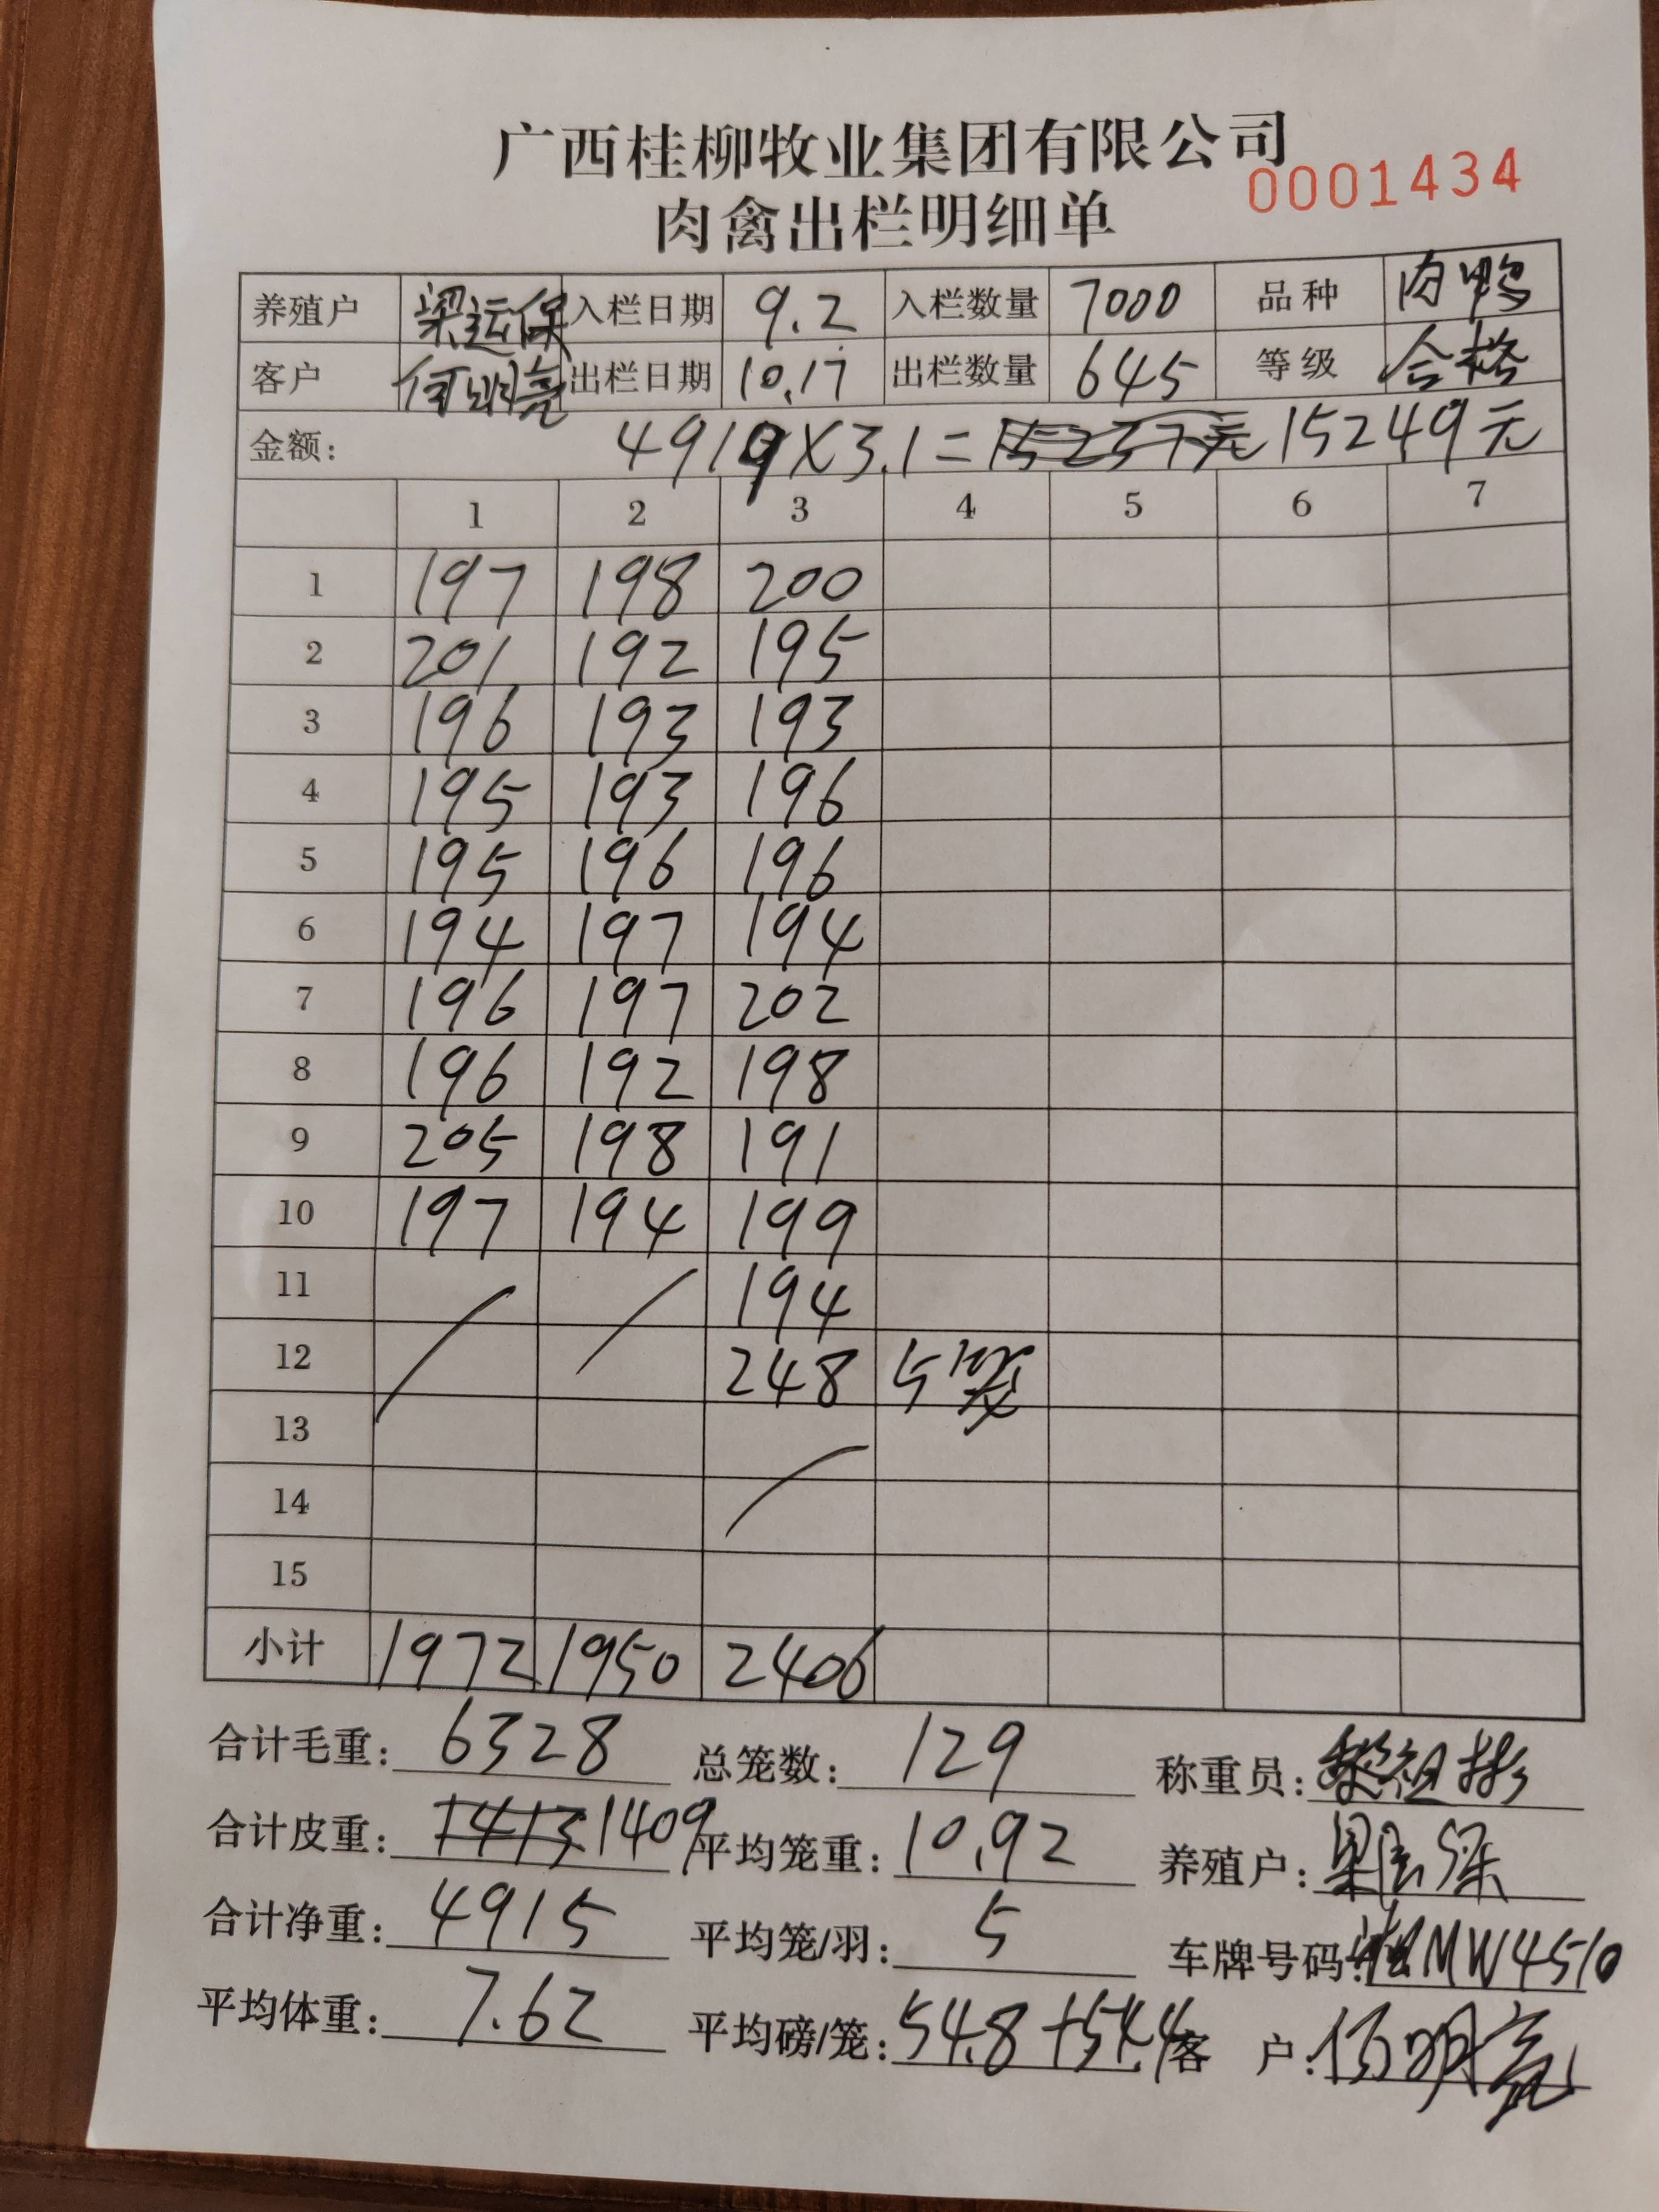 广西桂柳牧业集团有限公司
0001434
肉禽出栏明细单
养殖户 梁运保 入栏日期 9.2 入栏数量 7000 品种 肉鸭
客户 何明亮 出栏日期 10.17 出栏数量 645 等级 合格
金额: 4919X3.1=15237元 15249元
1 2 3 4 5 6 7
1 197 198 200
2 201 192 195
3 196 193 193
4 195 193 196
5 195 196 196
6 194 197 194
7 196 197 202
8 196 192 198
9 205 198 191
10 197 194 199
11 194
12 248 5笼
13
14
15
小计 1972 1950 2406
合计毛重: 6328 总笼数: 129 称重员: 黎祖彬
合计皮重: 1413 1409 平均笼重: 10.92 养殖户:
合计净重: 4915 平均笼/羽: 5 车牌号码: MW4510
平均体重: 7.62 平均磅/笼: 54.8+54.4 客户: 何明亮